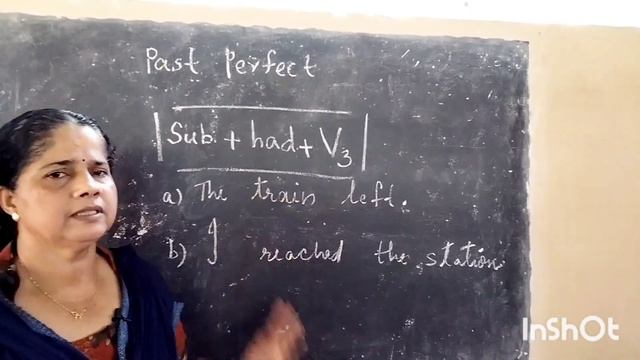 Past Perfect
Sub + had + V3
a) The train left.
b) I reached the station
InShOt